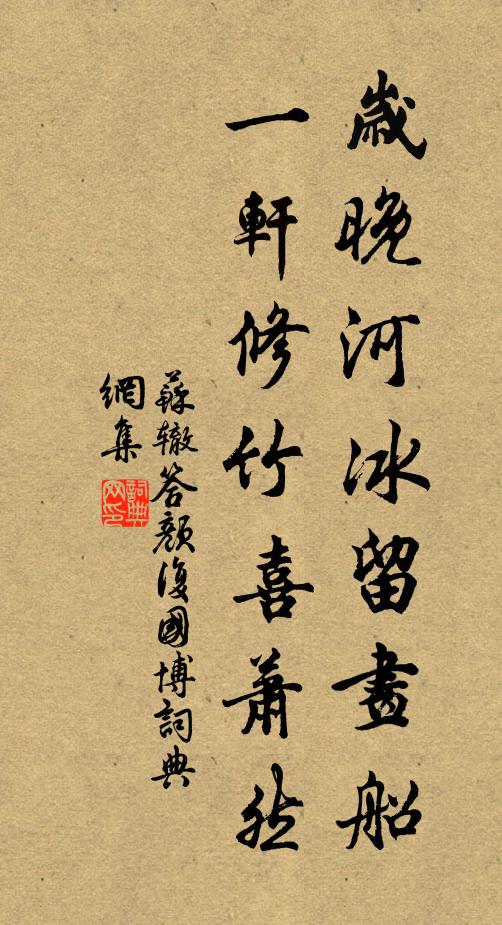 歲晚河冰留畫船
一軒修竹喜蕭然
蘇辙答顏復國博詞典
網集
詞典
网印